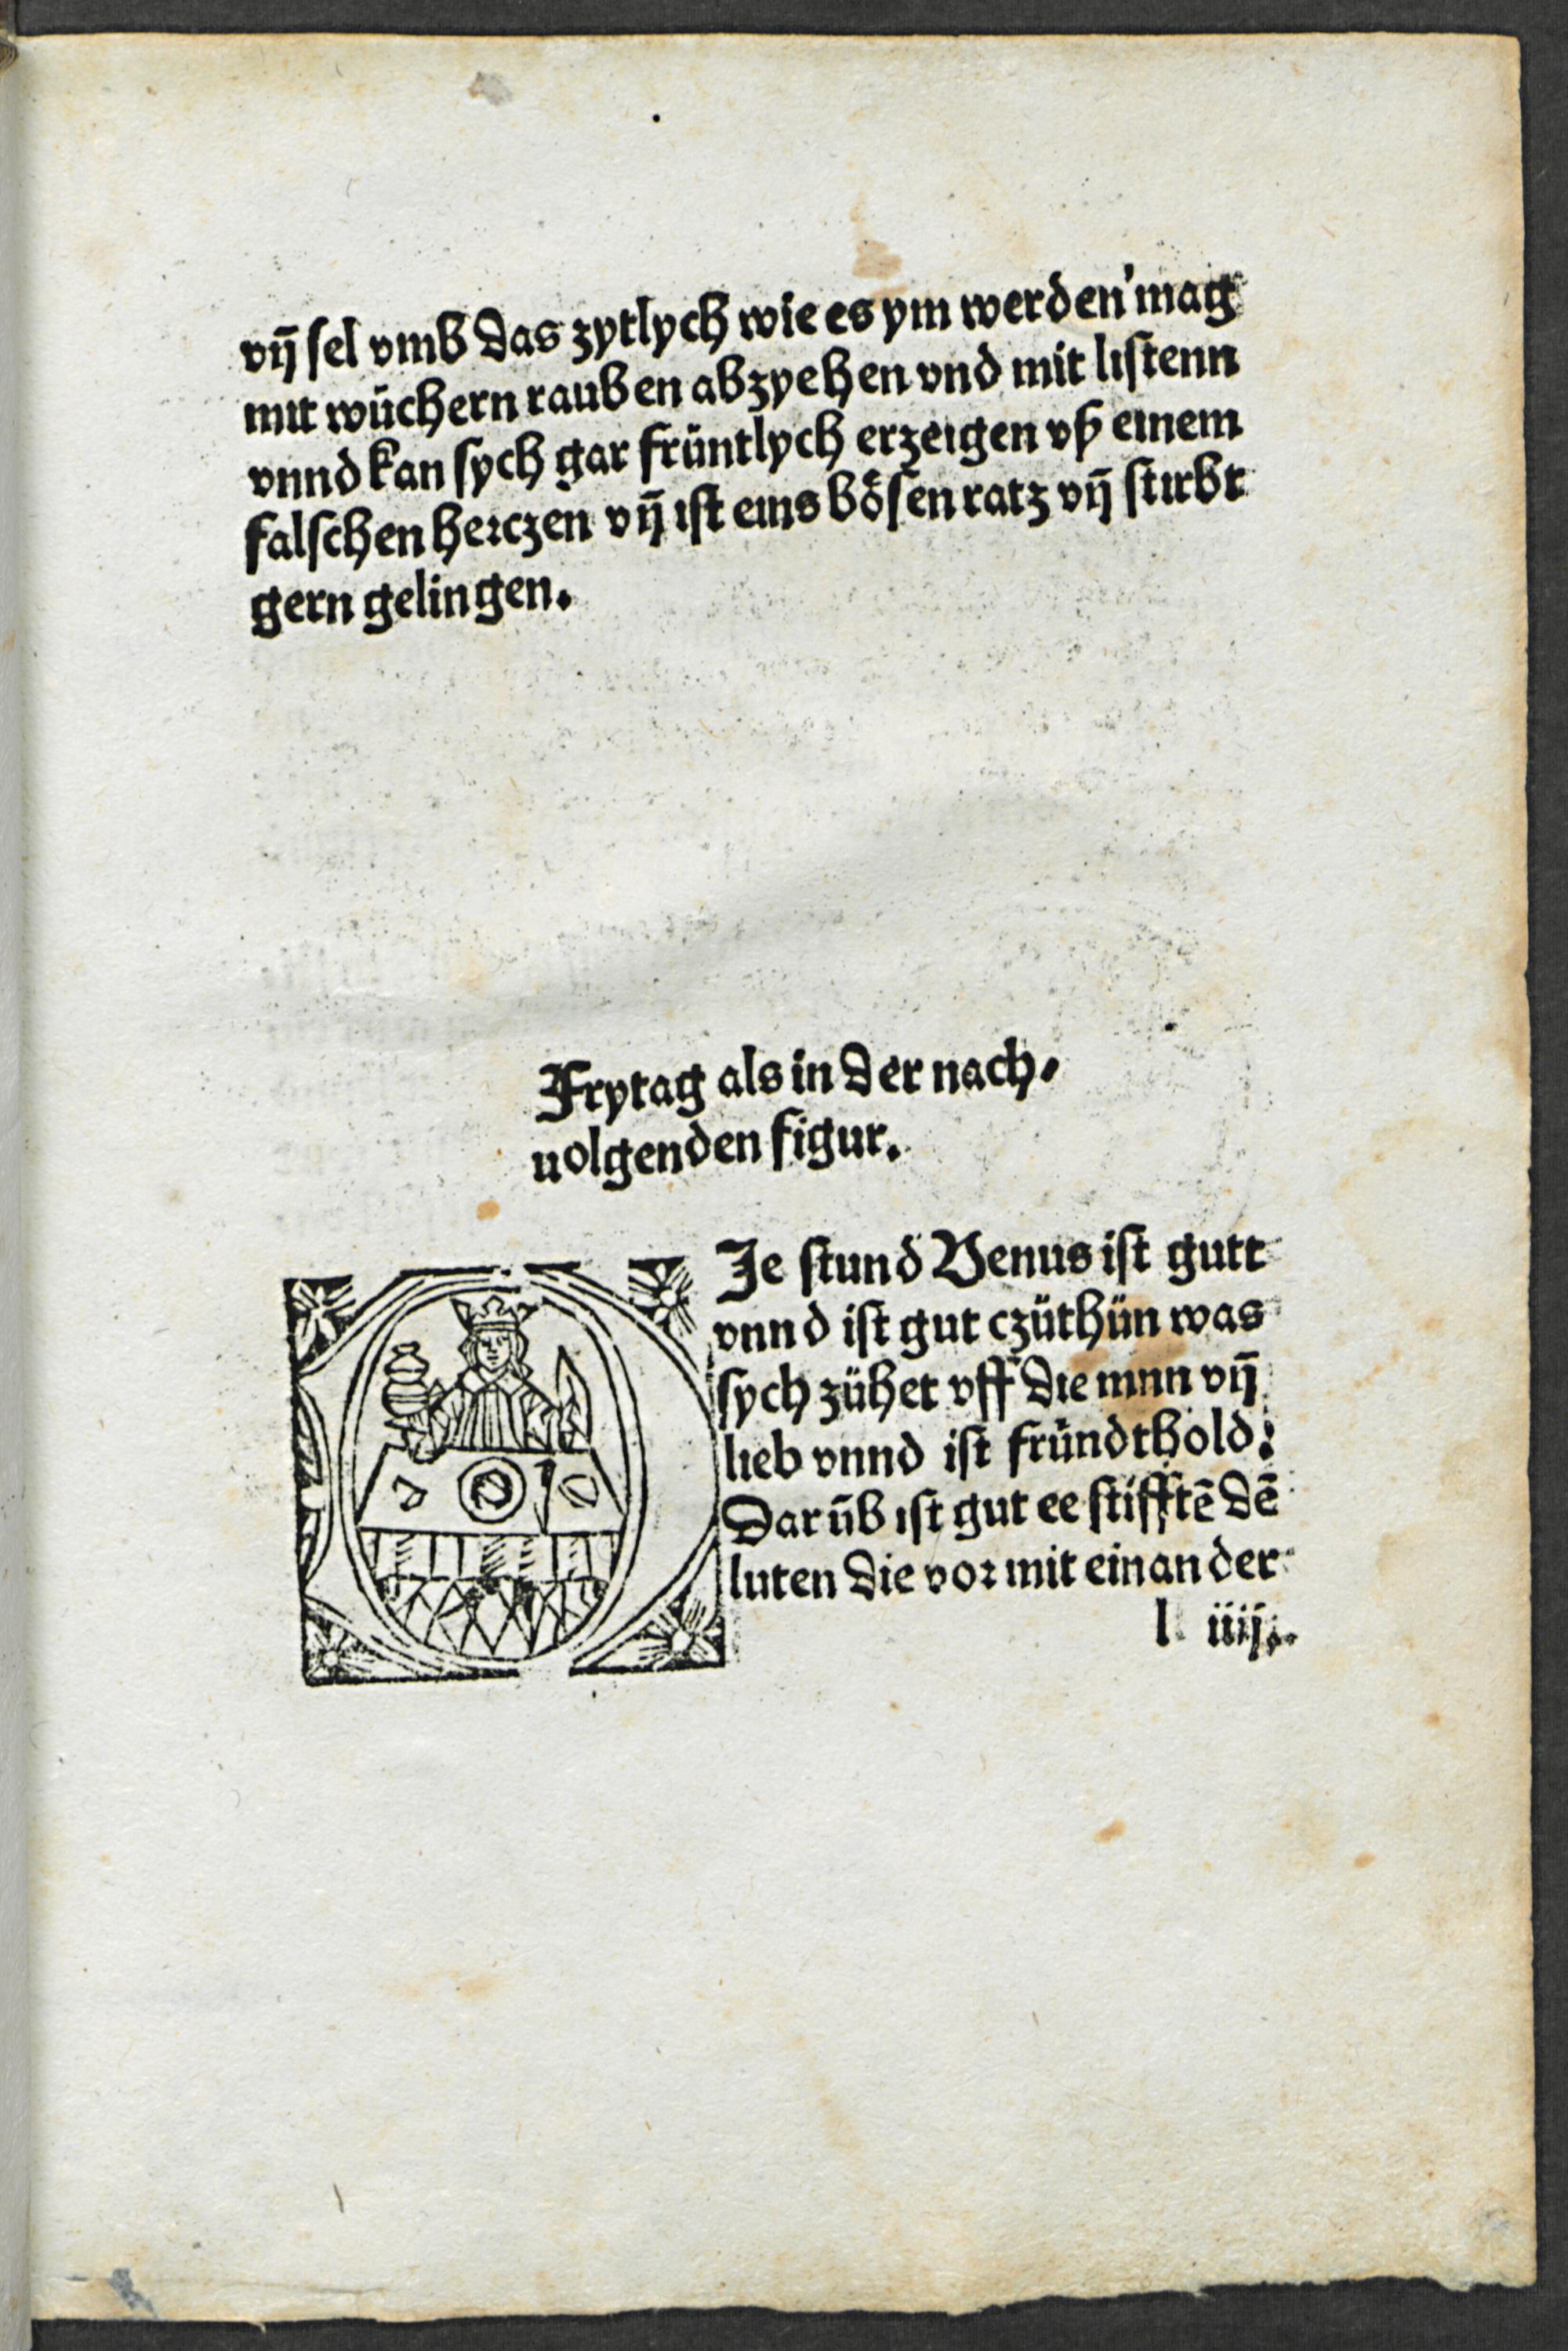 vñ sel vmb das zytlych wie es ym werden mag
mit wüchern rauben abzyehen vnd mit listenn
vnnd kan sych gar früntlych erzeigen vß einem
falschen herczen vñ ist eins bösen ratz vñ stirbt
gern gelingen.
Frytag als in der nach⸗
uolgenden figur.
Je stund Venus ist gutt
vnnd ist gut czüthün was
sych zühet vff die minn vñ
lieb vnnd ist fründthold:
Dar ūb ist gut ee stifftē dē
luten die vor mit einander
l iiij.